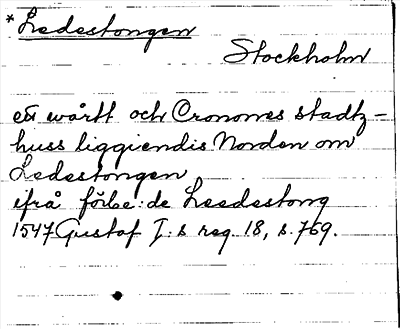 *Ledestongen
Stockholm
ett wårtt och Cronones stadtz-
huss liggiendis Norden om
Ledestongen
ifrå förbe:de Leedestong
1547 Gustaf I:s reg. 18, s. 769.